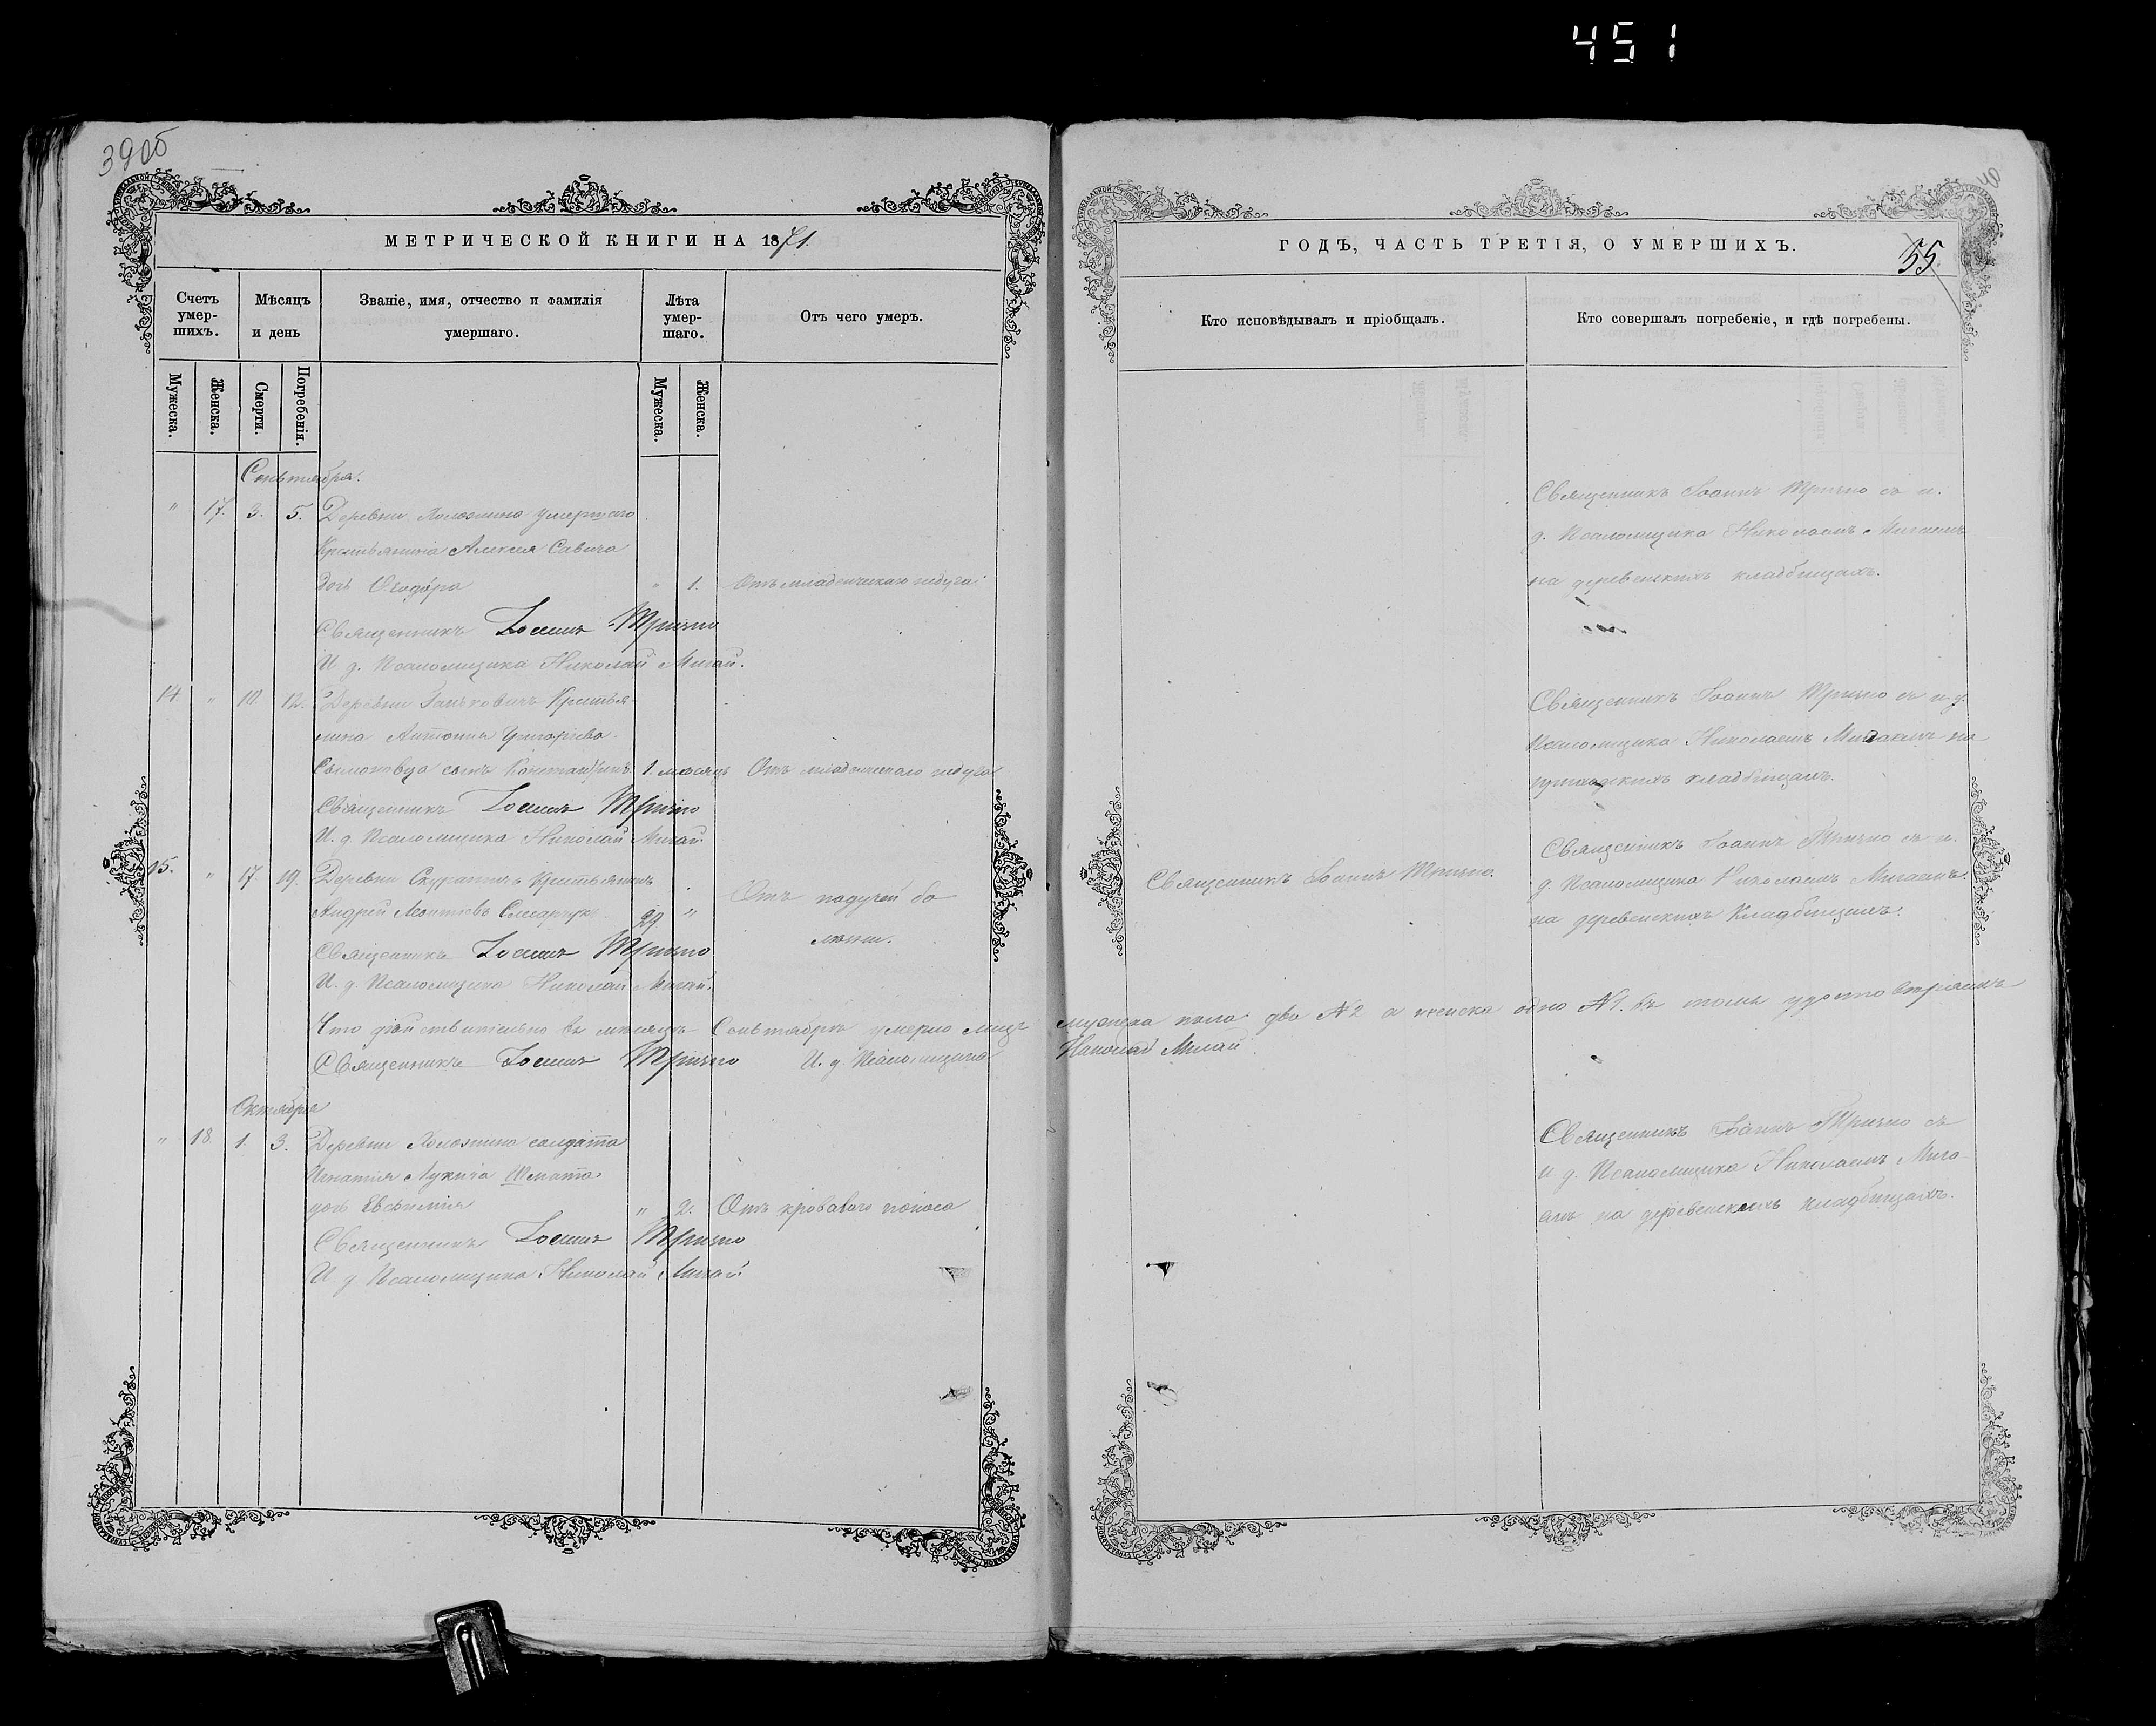 451
39об
40
МЕТРИЧЕСКОЙ КНИГИ НА 1871.
Счетъ умер-шихъ.
Мѣсяцъ и день
Званіе, имя, отчество и фамилія умершаго.
Лѣта умер-шаго.
Отъ чего умеръ.
Мужеска.
Женска.
Смерти.
Погребенія.
Мужеска.
Женска.
Сентября.
" 17. 3. 5. Деревни умершаго
Крестьянина Алексея Савича
дочь Ѳеодора " 1. Отъ младенческаго недуга
Священникъ Іоаннъ Тричко
И. д. Псаломщика Николай Мигай.
14. " 10. 12. Деревни Крестья-
нина Антонія Григорьева
сынъ Константинъ. 1. мѣсяцъ Отъ младенческаго недуга
Священникъ Іоаннъ Тричко
И. д. Псаломщика Николай Мигай.
15. " 17. 19. Деревни Скуратичъ Крестьянинъ
Андрей Леонтіевъ 29 " Отъ падучей бо
лѣзни.
Священникъ Іоаннъ Тричко
И. д. Псаломщика Николай Мигай.
Что дѣйствительно въ мѣсяцѣ Сентябрѣ умерло лицъ
Священникъ Іоаннъ Тричко И. д. Псаломщика
Октября
" 18. 1. 3. Деревни солдата
Игнатія Лукича
дочь Евфимія " 2. Отъ кроваваго поноса
Священникъ Іоаннъ Тричко
И. д. Псаломщика Николай Мигай.
ГОДЪ, ЧАСТЬ ТРЕТІЯ, О УМЕРШИХЪ.
55.
Кто исповѣдывалъ и пріобщалъ.
Кто совершалъ погребеніе, и гдѣ погребены.
Священникъ Іоаннъ Тричко съ и.
д. Псаломщика Николаемъ Мигаемъ
на деревенскихъ кладбищахъ.
Священникъ Іоаннъ Тричко съ и. д.
Псаломщика Николаемъ Мигаемъ на
кладбищахъ.
Священникъ Іоаннъ Тричко.
Священникъ Іоаннъ Тричко съ и.
д. Псаломщика Николаемъ Мигаемъ.
на деревенскихъ Кладбищахъ.
мужеска пола два №2 а женска одно №1. въ томъ удостовѣряемъ
Николай Мигай
Священникъ Іоаннъ Тричко съ
и. д. Псаломщика Николаемъ Мига-
емъ на деревенскихъ кладбищахъ.